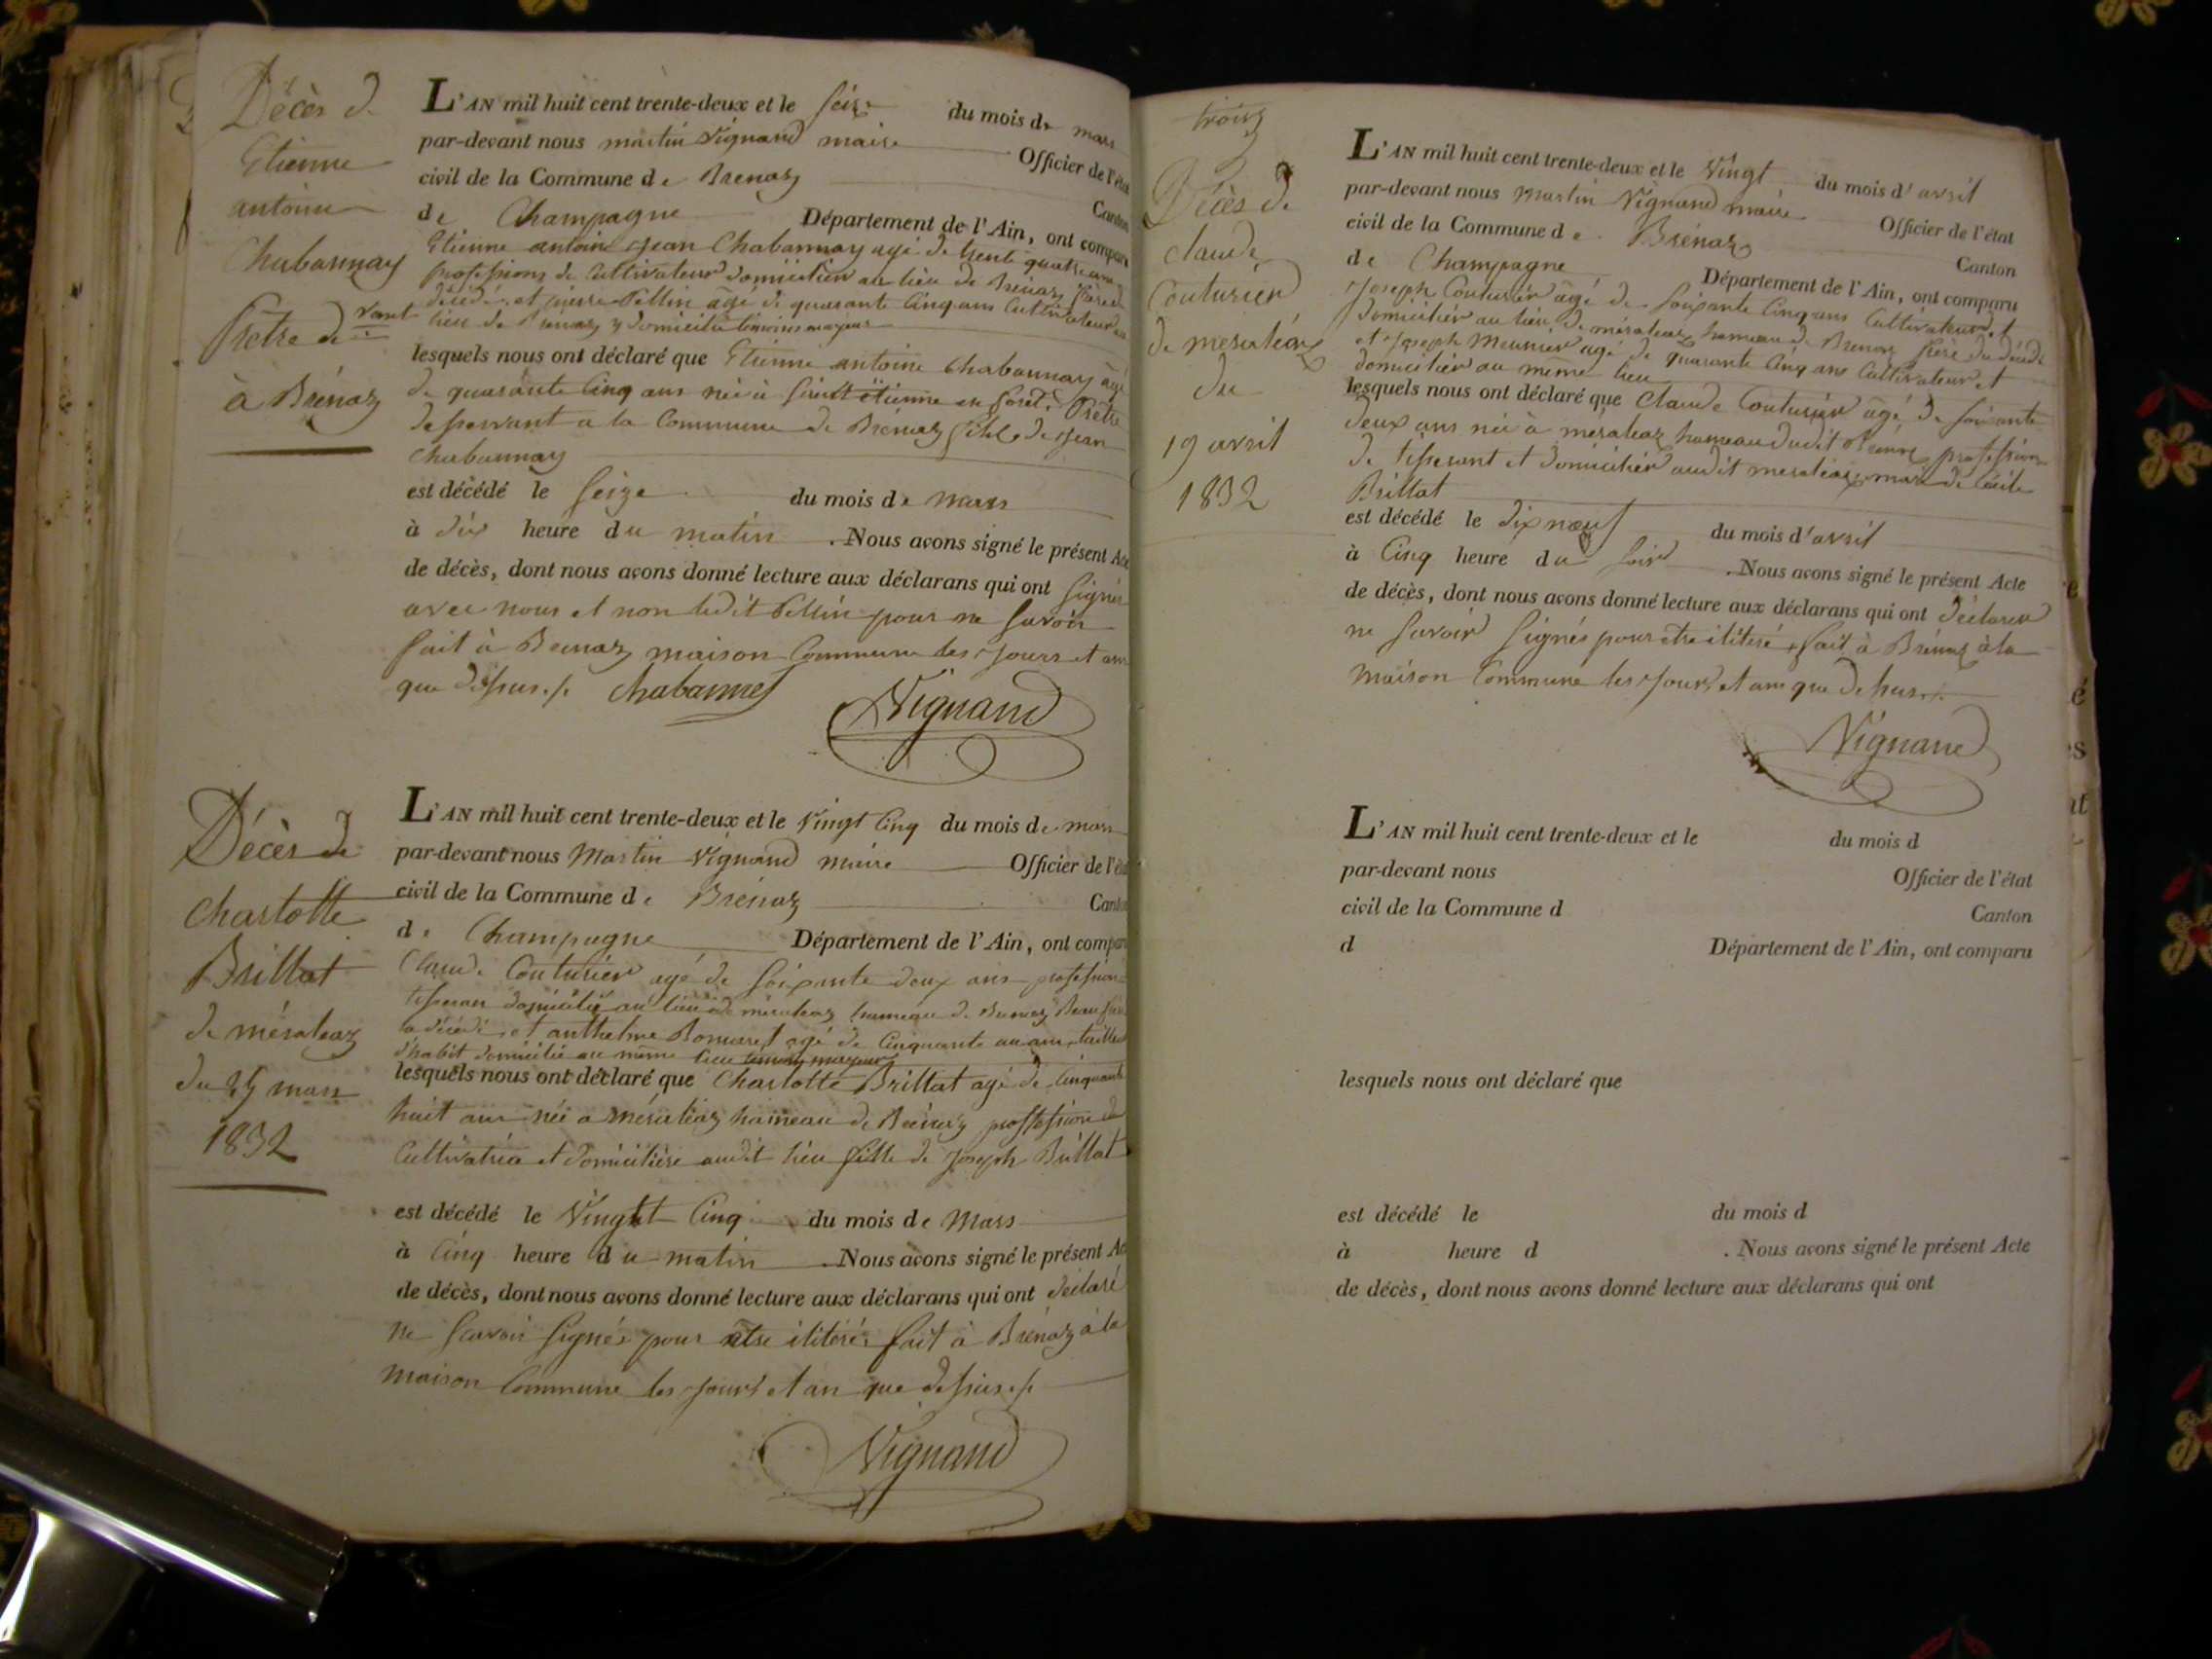 Décès de
Etienne
antoine
Chabannay
Prêtre de
vant
à Brénaz
L'AN mil huit cent trente-deux et le seize du mois de mars
par-devant nous martin Vignand maire Officier de l'état
civil de la Commune de Brenaz Canton
de Champagne Département de l'Ain, ont comparu
Etienne antoine Jean Chabannay agé de trente quatre ans
professions de Cultivateur domicilier au lieu de Brénaz frère du
décédé, et pierre Pellin âgé de quarante Cinq ans Cultivateur au
lieu de Brenaz y domicilié témoins majeurs
lesquels nous ont déclaré que Etienne antoine Chabannay âgé
de quarante Cinq ans née à Saint étienne en foret, Prêtre
desservant a la Commune de Brénaz fils de Jean
Chabannay
est décédé le seize du mois de mars
à dix heure du matin . Nous avons signé le présent Acte
de décès, dont nous avons donné lecture aux déclarans qui ont signés
avec nous et non ledit Pellin pour ne savoir
fait à Brenaz maison Commune les jours et an
que dessus ./. Chabannes
Vignand
Décès de
Charlotte
Brillat
de méraléaz
du 25 mars
1832
L'AN mil huit cent trente-deux et le Vingt Cinq du mois de mars
par-devant nous Martin Vignand maire Officier de l'état
civil de la Commune de Brénaz Canton
de Champagne Département de l'Ain, ont comparu
Claude Couturier agé de soixante deux ans profession
tisseran domicilié au lieu de méraléaz hameau de Brenaz Beau frère
a décédé, et anthelme Bomaret agé de Cinquante un ans tailleur
d'habit domicilié au même lieu témoins majeurs
lesquels nous ont déclaré que Charlotte Brillat agé de Cinquante
huit ans née a méraléaz hameau de Brénaz profession de
Cultivatrice et domicilière audit lieu fille de Joseph Brillat
est décédé le Vinght Cinq du mois de Mars
à Cinq heure du matin . Nous avons signé le présent Acte
de décès, dont nous avons donné lecture aux déclarans qui ont déclaré
ne savoir signés pour etre ilitéré, fait à Brénaz à la
maison Commune les jours et an que dessus ./.
Vignand
trois
Décès de
Claude
Couturier
de meraléaz
du
19 avril
1832
L'AN mil huit cent trente-deux et le Vingt du mois d'avril
par-devant nous Martin Vignand maire Officier de l'état
civil de la Commune de Brénaz Canton
de Champagne Département de l'Ain, ont comparu
Joseph Couturier âgé de soixante Cinq ans Cultivateur et
domicilier au lieu de méraléaz hameau de Brenaz frère du décédé
et Joseph Meunier agé de quarante Cinq ans Cultivateur et
domicilier au même lieu
lesquels nous ont déclaré que Claude Couturier âgé de soixante
deux ans née à méraléaz hameau dudit Brénaz profession
de tisserant et domicilier audit meraléaz, mari de Cécile
Brillat
est décédé le dix nœuf du mois d'avril
à Cinq heure du soir . Nous avons signé le présent Acte
de décès, dont nous avons donné lecture aux déclarans qui ont déclarer
ne savoir signés pour etre ilitéré, fait à Brénaz à la
maison Commune les jours et an que dessus ./.
Vignand
L'AN mil huit cent trente-deux et le du mois d
par-devant nous Officier de l'état
civil de la Commune d Canton
d Département de l'Ain, ont comparu
lesquels nous ont déclaré que
est décédé le du mois d
à heure d . Nous avons signé le présent Acte
de décès, dont nous avons donné lecture aux déclarans qui ont